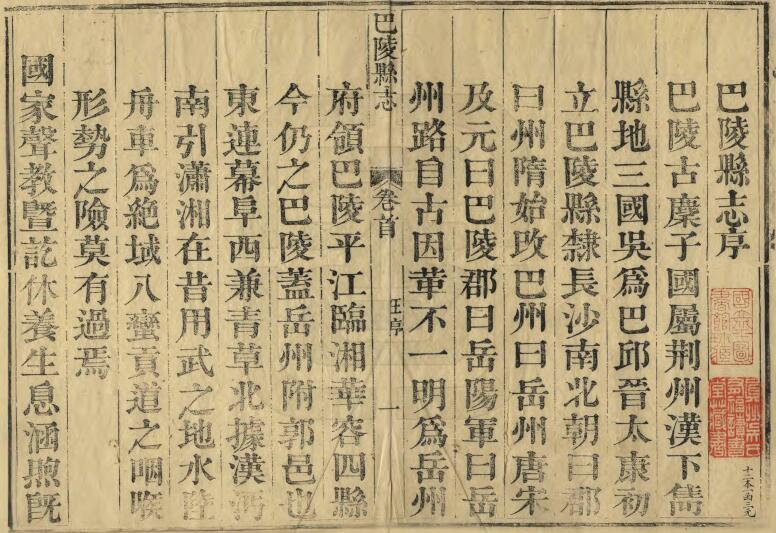 巴陵縣志序
巴陵古麋子國屬荆州漢下雋
縣地三國吳爲巴邱晉太康初
立巴陵縣隸長沙南北朝曰郡
曰州隋始改巴州曰岳州唐宋
及元曰巴陵郡曰岳陽軍曰岳
州路自古因革不一明爲岳州
巴陵縣志
卷首
序
一
府領巴陵平江臨湘華容四縣
今仍之巴陵蓋岳州附郭邑也
東連幕阜西兼青草北據漢沔
南引瀟湘在昔用武之地水陸
舟車爲絶域八蠻貢道之咽喉
形勢之險莫有過焉
國家聲教暨訖休養生息涵煦旣